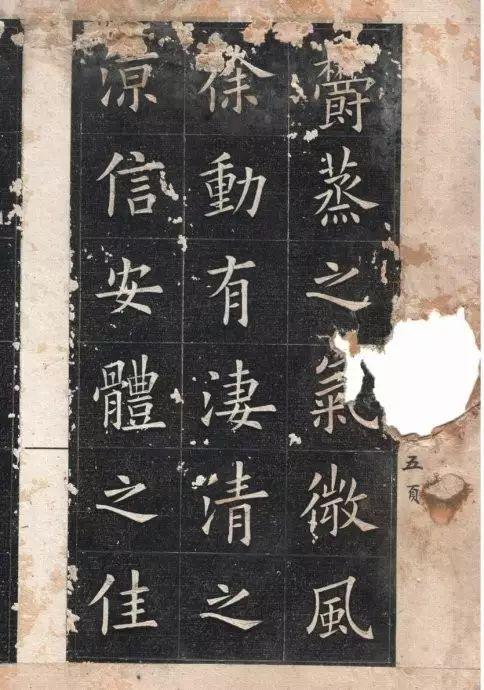 欝蒸之氣微風
徐動有淒清之
涼信安體之佳
五頁